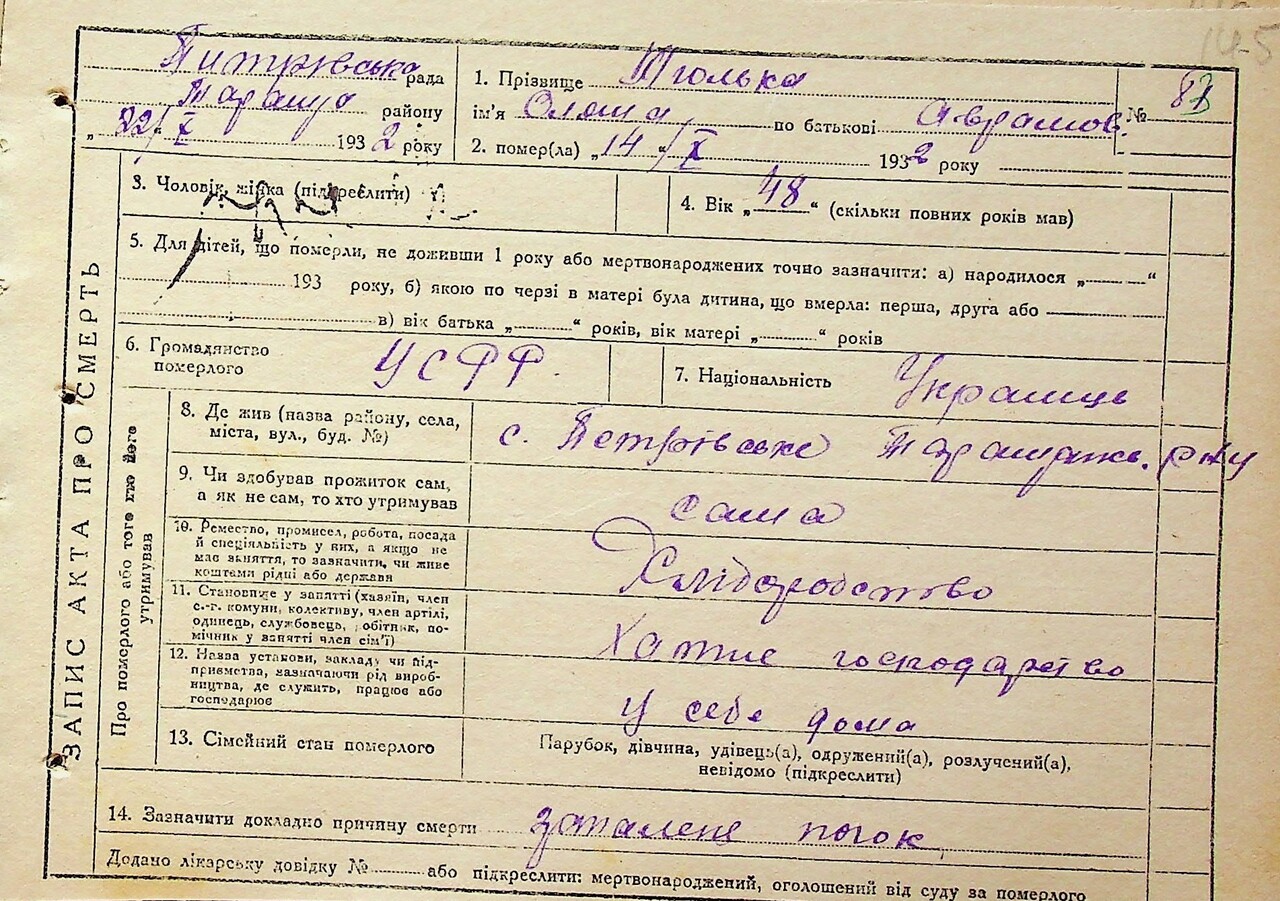 145
Питрівська рада
Таращ району
„ 22/X 1932 року
1. Прізвище Тюлька
ім'я Оляна по батькові Аврамов.
№ 83
2. помер(ла) „ 14 / X 1932 року
ЗАПИС АКТА ПРО СМЕРТЬ
3. Чоловік, жінка (підкреслити)
4. Вік „ 48 “ (скільки повних років мав)
5. Для дітей, що померли, не доживши 1 року або мертвонароджених точно зазначити: а) народилося „ “
193 року, б) якою по черзі в матері була дитина, що вмерла: перша, друга або
в) вік батька „ “ років, вік матері „ “ років
6. Громадянство померлого УСРР
7. Національність Украинць
Про померлого або того хто його утримував
8. Де жив (назва району, села,
міста, вул., буд. №)
с. Петрівське Таращанськ. р-ну
9. Чи здобував прожиток сам,
а як не сам, то хто утримував
сама
10. Ремество, промисел, робота, посада
й спеціяльність у них, а якщо не
має заняття, то зазначити, чи живе
коштами рідні або держави
Хліборобство
11. Становище у занятті (хазяїн, член
с.-г. комуни, колективу, член артілі,
одинець, службовець, робітник, по-
мічник у занятті член сім'ї)
Хатне господарство
12. Назва установи, закладу чи під-
приємства, зазначаючи рід вироб-
ництва, де служить, працює або
господарює
У себе дома
13. Сімейний стан померлого
Парубок, дівчина, удівець(а), одружений(а), розлучений(а),
невідомо (підкреслити)
14. Зазначити докладно причину смерти заталене почок
Додано лікарську довідку № або підкреслити: мертвонароджений, оголошений від суду за померлого